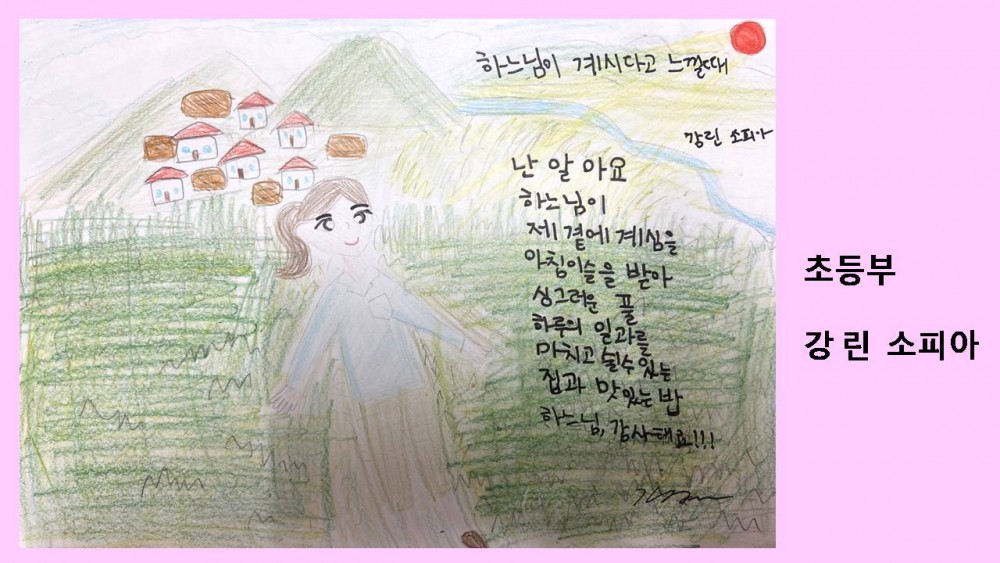 하느님이 계시다고 느낄때
강린 소피아
난 알 아요
하느님이
제 곁에 계심을
아침이슬을 받아
싱그러운 풀
하루의 일과를
마치고 쉴수 있는
집과 맛있는 밥
하느님, 감사해요!!!
초등부
강 린 소피아